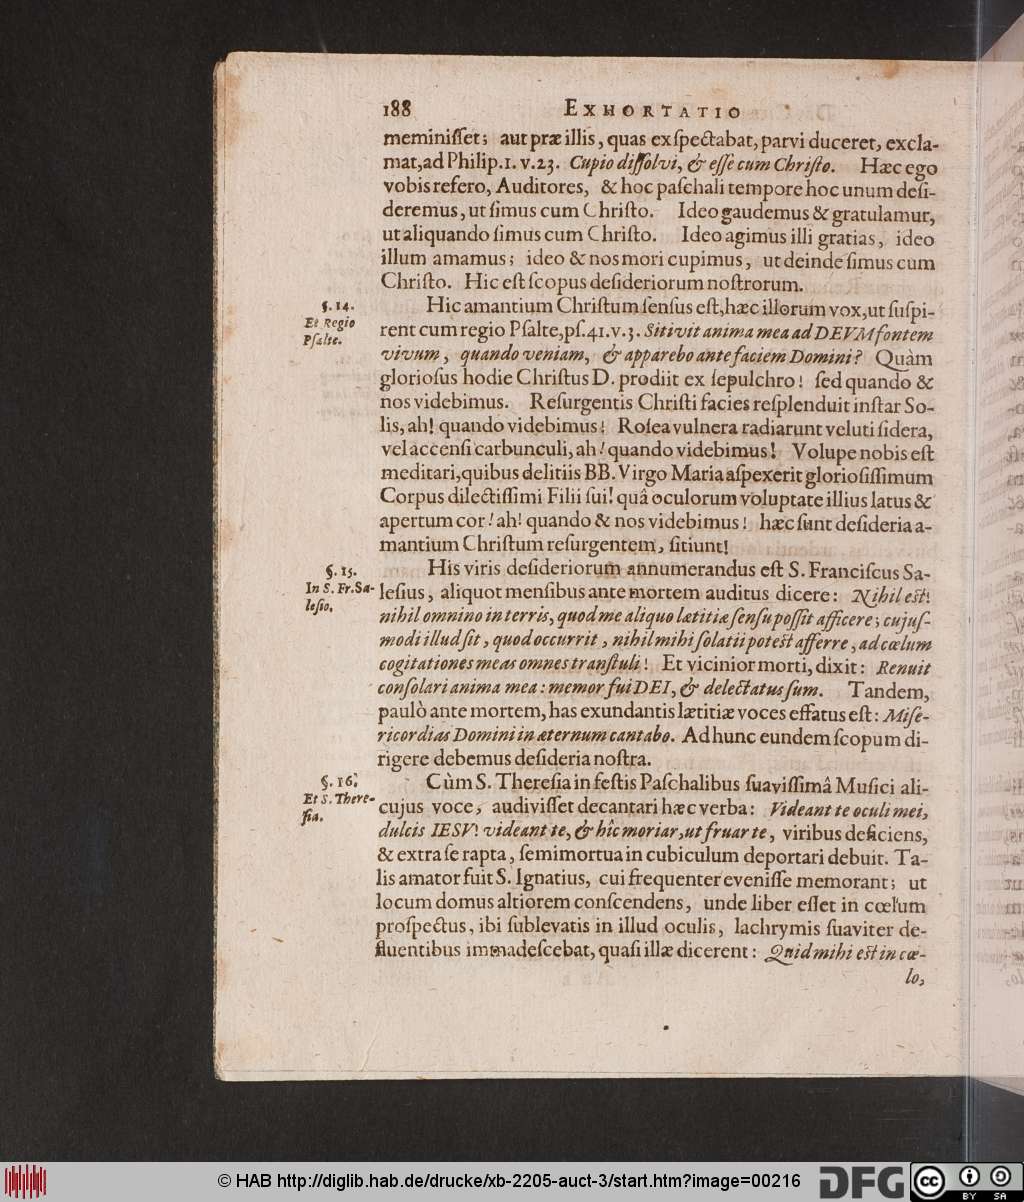 188 EXHORTATIO
meminiſſet; aut præ illis, quas exſpectabat, parvi duceret, excla-
mat, ad Philip. 1. v. 23. Cupio diſſolvi, & eſſe cum Chriſto. Hæc ego
vobis refero, Auditores, & hoc paſchali tempore hoc unum deſi-
deremus, ut ſimus cum Chriſto. Ideo gaudemus & gratulamur,
ut aliquando ſimus cum Chriſto. Ideo agimus illi gratias, ideo
illum amamus; ideo & nos mori cupimus, ut deinde ſimus cum
Chriſto. Hic eſt ſcopus deſideriorum noſtrorum.
§. 14.
Et Regio
Pſalte.
Hic amantium Chriſtum ſenſus eſt, hæc illorum vox, ut ſuſpi-
rent cum regio Pſalte, pſ. 41. v. 3. Sitivit anima mea ad DEVM fontem
vivum, quando veniam, & apparebo ante faciem Domini? Quàm
glorioſus hodie Chriſtus D. prodiit ex ſepulchro! ſed quando &
nos videbimus. Reſurgentis Chriſti facies reſplenduit inſtar So-
lis, ah! quando videbimus! Roſea vulnera radiarunt veluti ſidera,
vel accenſi carbunculi, ah! quando videbimus! Volupe nobis eſt
meditari, quibus delitiis BB. Virgo Maria aſpexerit glorioſiſſimum
Corpus dilectiſſimi Filii ſui! quâ oculorum voluptate illius latus &
apertum cor! ah! quando & nos videbimus! hæc ſunt deſideria a-
mantium Chriſtum reſurgentem, ſitiunt!
§. 15.
In S. Fr. Sa-
leſio.
His viris deſideriorum annumerandus eſt S. Franciſcus Sa-
leſius, aliquot menſibus ante mortem auditus dicere: Nihil eſt!
nihil omnino in terris, quod me aliquo lætitiæ ſenſu poſſit afficere; cujuſ-
modi illud ſit, quod occurrit, nihil mihi ſolatii poteſt afferre, ad cœlum
cogitationes meas omnes tranſtuli! Et vicinior morti, dixit: Renuit
conſolari anima mea: memor fui DEI, & delectatus ſum. Tandem,
paulò ante mortem, has exundantis lætitiæ voces effatus eſt: Miſe-
ricordias Domini in æternum cantabo. Ad hunc eundem ſcopum di-
rigere debemus deſideria noſtra.
§. 16.
Et S. There-
ſia.
Cùm S. Thereſia in feſtis Paſchalibus ſuaviſſimâ Muſici ali-
cujus voce, audiviſſet decantari hæc verba: Videant te oculi mei,
dulcis IESV! videant te, & hîc moriar, ut fruar te, viribus deficiens,
& extra ſe rapta, ſemimortua in cubiculum deportari debuit. Ta-
lis amator fuit S. Ignatius, cui frequenter eveniſſe memorant; ut
locum domus altiorem conſcendens, unde liber eſſet in cœlum
proſpectus, ibi ſublevatis in illud oculis, lachrymis ſuaviter de-
fluentibus immadeſcebat, quaſi illæ dicerent: Quid mihi eſt in cœ-
lo,
© HAB http://diglib.hab.de/drucke/xb-2205-auct-3/start.htm?image=00216
DFG
cc BY SA